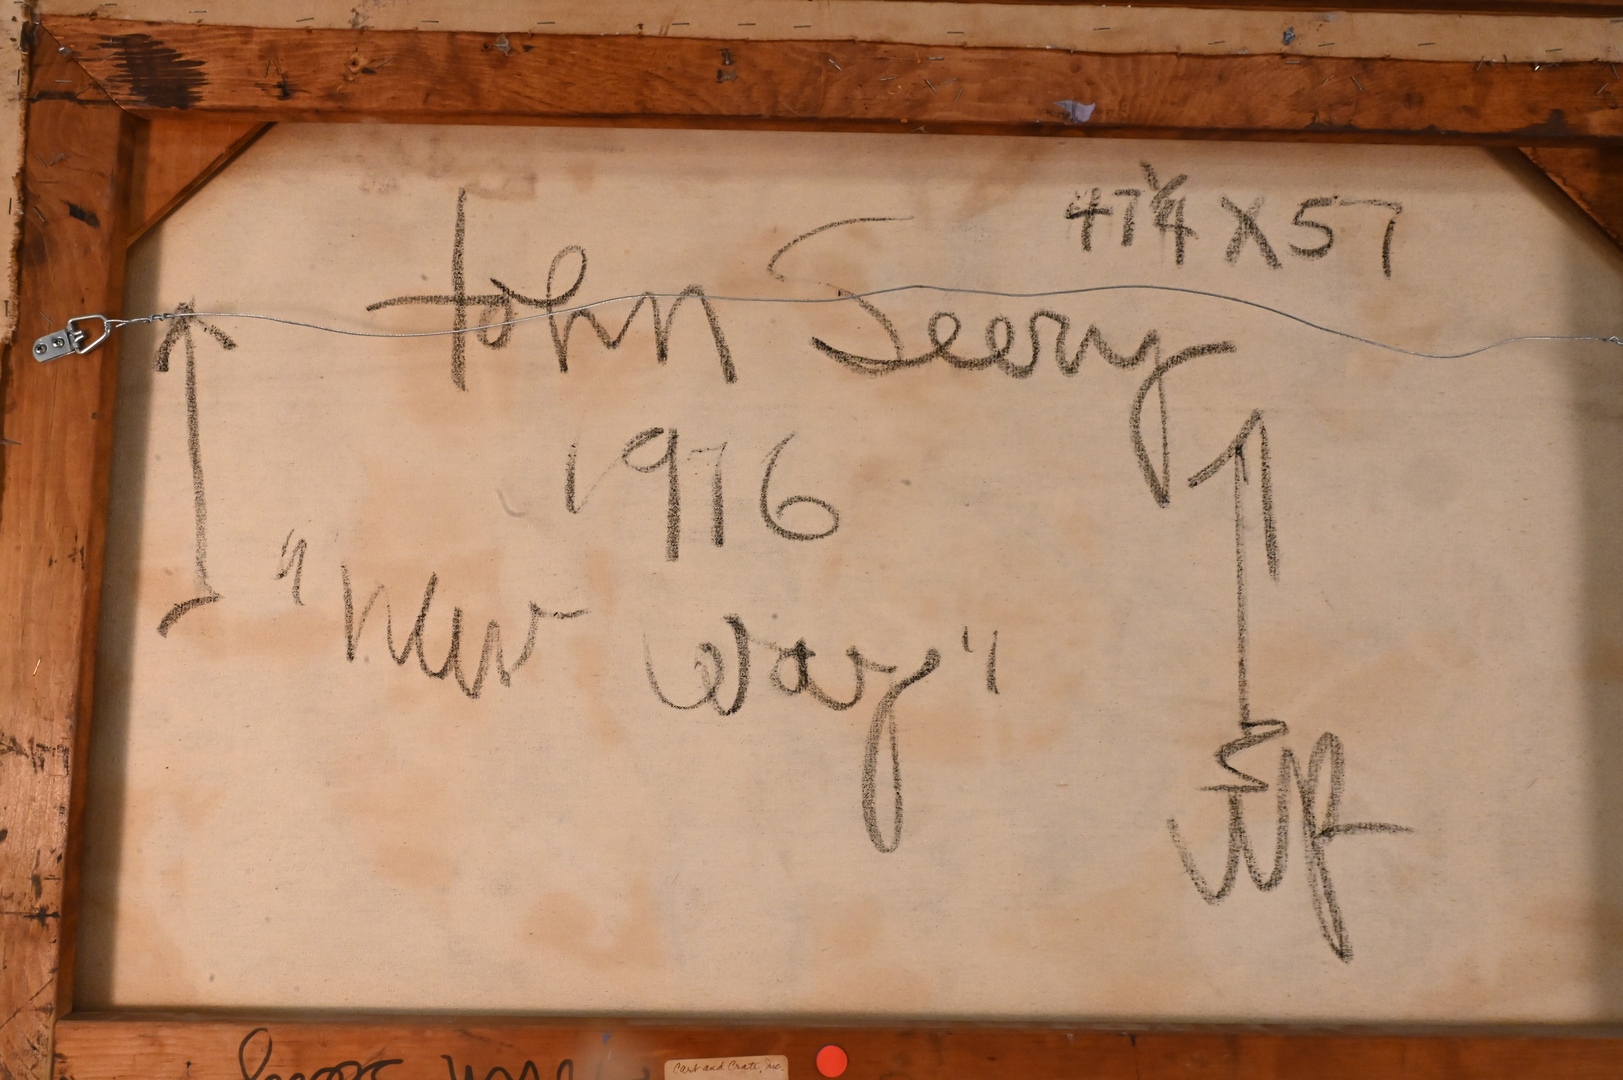 47 1/4 X 57
John Seery
1976
"New Way"
UP
Cart and Crate, Inc.